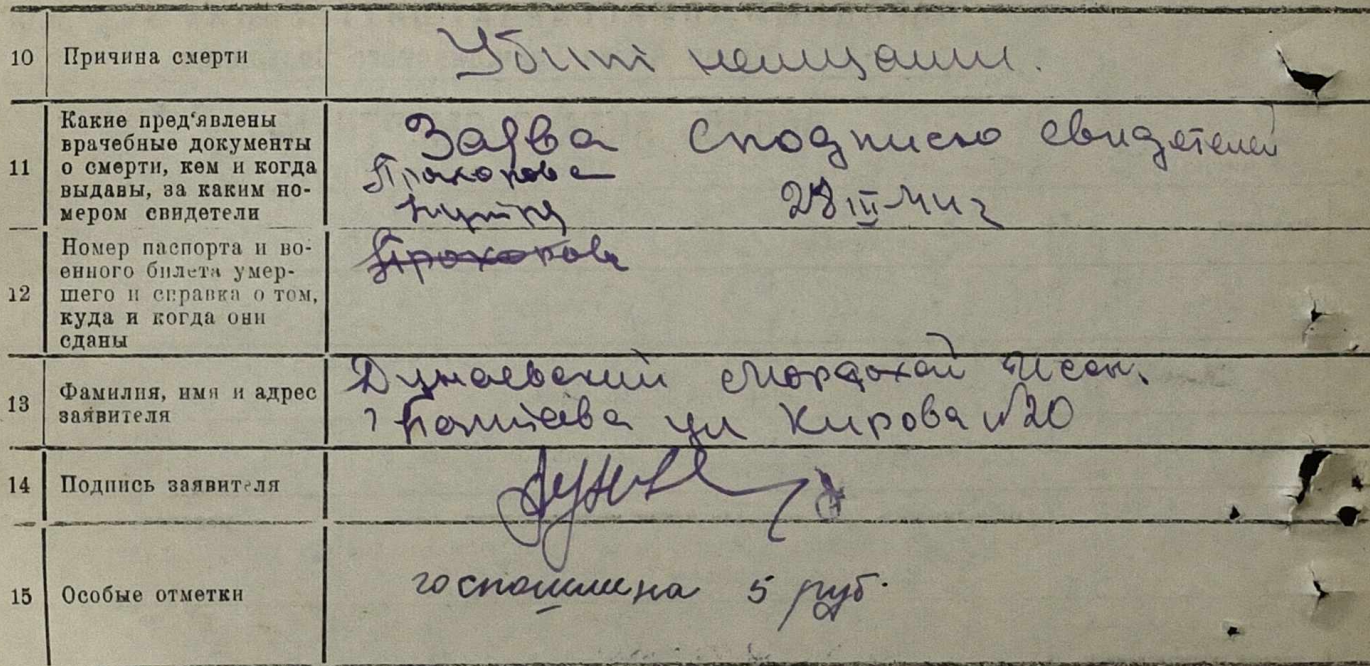 10 Причина смерти
Убит немцами.
11 Какие пред'явлены
врачебные документы
о смерти, кем и когда
выдавы, за каким но-
мером свидетели
Заява сподписю свидетелей
Прокопова
28 III-44 г
12 Номер паспорта и во-
енного билета умер-
шего и справка о том,
куда и когда они
сданы
Прохопова
13 Фамилия, имя и адрес
заявителя
Дунаевский Мордохай Исак.
г Полтава ул Кирова №20
14 Подпись заявителя
15 Особые отметки
госпошлина 5 руб.